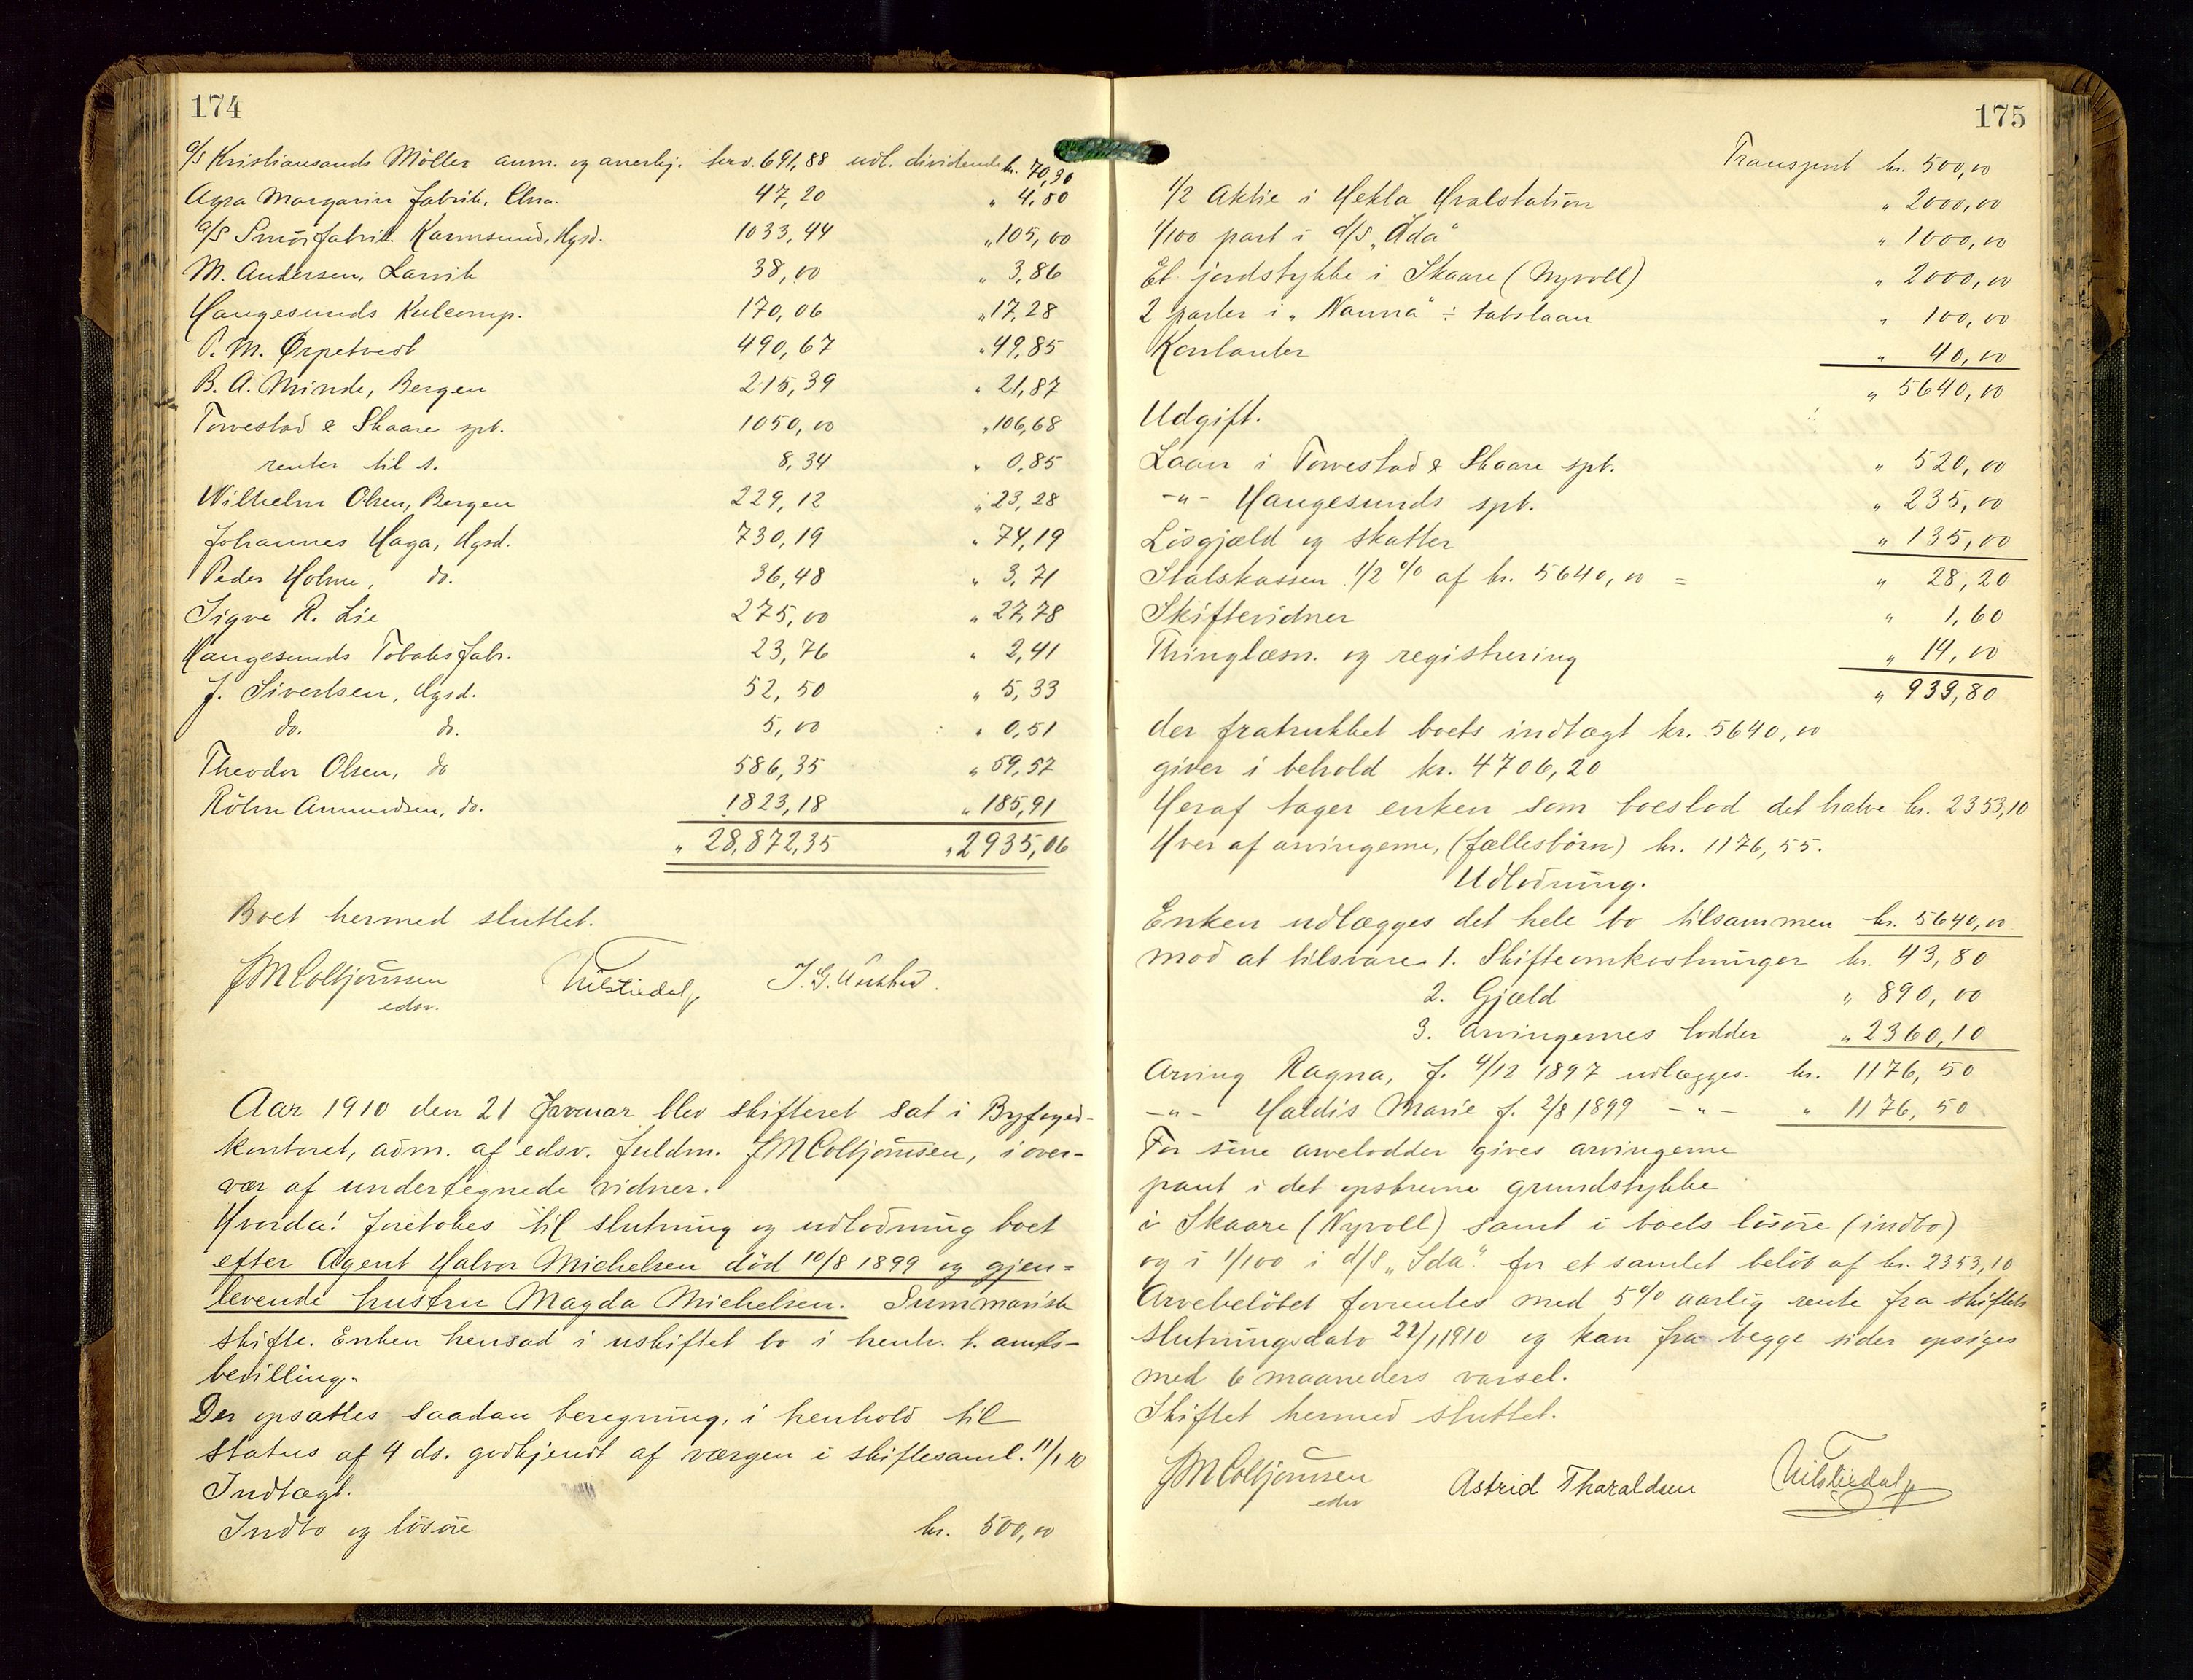 174
a/s Kristiansands Möller anm. og anerkj. krv. 691,88 udl. dividende kr. 70,30
Agra Margarin fabrik, Chra. 47,20 " 4,80
a/s Smörfabrik Karmsund, Hgsd. 1033,44 " 105,00
M. Andersen, Larvik 38,00 " 3,86
Haugesunds Kulcomp. 170,06 " 17,28
P. M. Ørpetvedt 490,67 " 49,85
B. A. Minde, Bergen 215,39 " 21,87
Torvestad & Skaare spb. 1050,00 " 106,68
renter til s. 8,34 " 0,85
Wilhelm Olsen, Bergen 229,12 " 23,28
Johannes Haga, Hgsd. 730,19 " 74,19
Peder Holme, do. 36,48 " 3,71
Sigve R. Lie 275,00 " 27,78
Haugesunds Tobaksfabr. 23,76 " 2,41
J. Sivertsen, Hgsd. 52,50 " 5,33
do. do. 5,00 " 0,51
Theodor Olsen, do 586,35 " 59,57
Röhn Amundsen, do. 1823,18 " 185,91
" 28,872,35 " 2935,06
Boet hermed sluttet.
JMColbjörnsen
edsv.
Aar 1910 den 21 Januar blev skifteret sat i Byfoged-
kontoret, adm. af edsv. fuldm. JMColbjörnsen, i over-
vær af undertegnede vidner.
Hvorda! foretokes til slutning og udlodning boet
efter Agent Halvor Michelsen död 10/8 1899 og gjen-
levende hustru Magda Michelsen. Summarisk
skifte. Enken hensad i uskiftet bo i henh. t. amts-
bevilling.
Der opsattes saadan beregning, i henhold til
status af 4 ds. godkjendt af værgen i skiftesaml. 11/1 10
Indtægt.
Indbo og lösöre kr. 500,00
175
Transport kr. 500,00
1/2 Aktie i Hekla Hvalstation " 2000,00
1/100 part i d/s "Ada" " 1000,00
Et jordstykke i Skaare (Nyvoll) " 2000,00
2 parter i "Nanna" ÷ tabslaan " 100,00
Konlanter " 40,00
" 5640,00
Udgift.
Laan i Torvestad & Skaare spb. " 520,00
-"- Haugesunds spb. " 235,00
Lösgjæld og skatter " 135,00
Statskassen 1/2 % af kr. 5640,00 = " 28,20
Skiftevidner " 1,60
Thinglæsn. og registrering " 14,00
" 933,80
der fratrukket boets indtægt kr. 5640,00
giver i behold kr. 4706,20
Heraf tager enken som boeslod det halve kr. 2353,10
Hver af arvingerne, (fællesbörn) kr. 1176,55.
Udlodning.
Enken udlægges det hele bo tilsammen kr. 5640,00
mod at tilsvare 1. Skifteomkostninger kr. 43,80
2. Gjæld " 890,00
3. Arvingernes lodder " 2360,10
Arving Ragna, f. 4/12 1897 udlægges. kr. 1176,50
-"- Haldis Marie f. 2/8 1899 -"- " 1176,50
For sine arvelodder gives arvingerne
pant i det opskrevne grundstykke
i Skaare (Nyvoll) samt i boets lösöre (indbo)
og i 1/100 i d/s "Ida" for et samlet belöb af kr. 2353,10
Arvebelöbet forrentes med 5% aarlig rente fra skiftets
slutningsdato 22/1 1910 og kan fra begge sider opsiges
med 6 maaneders varsel.
Skiftet hermed sluttet.
JMColbjörnsen Astrid Tharaldsen
edsv